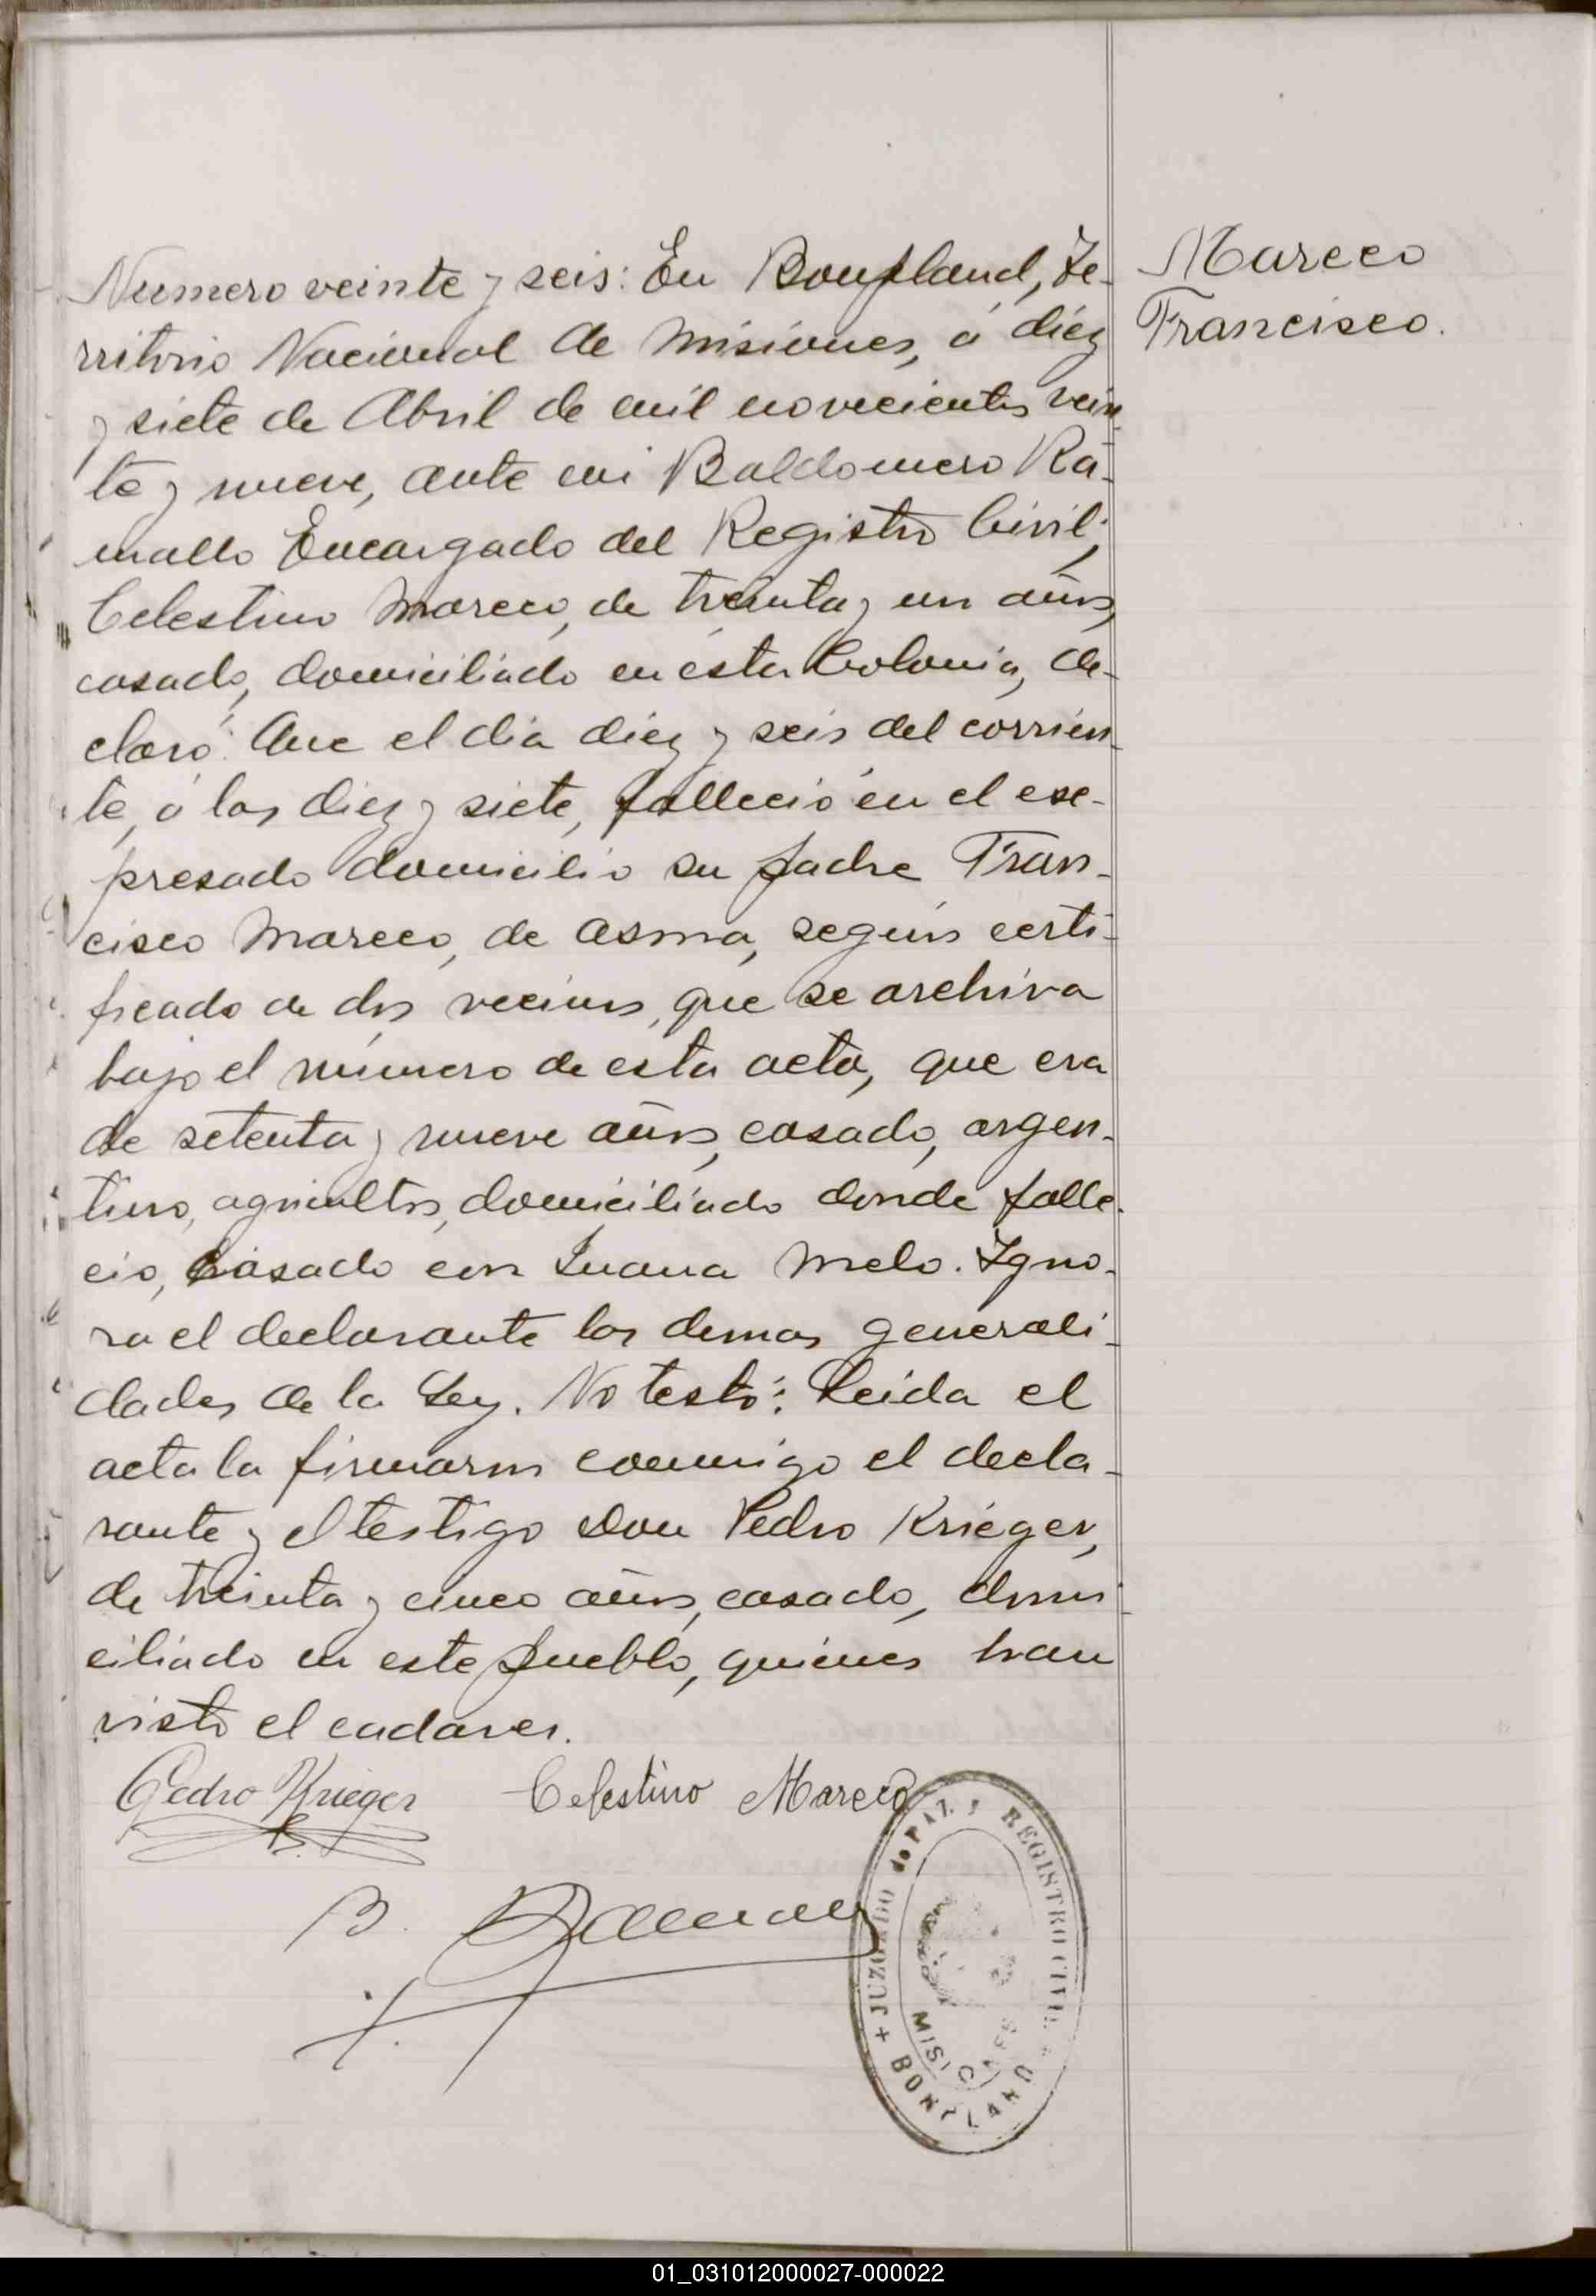 Numero veinte y seis: En Bonpland, Te-
rritorio Nacional de Misiones, á diez
y siete de Abril de mil novecientos vein
te y nueve, ante mi Baldomero Ra-
mallo Encargado del Registro Civil;
Celestino Mareco, de treinta y un años,
casado, domiciliado en ésta Colonia, de-
claró: Que el dia diez y seis del corrien-
te, á las diez y siete, falleció en el ex-
presado domicilio su padre Fran-
cisco Mareco, de asma, según certi-
ficado de dos vecinos, que se archiva
bajo el número de esta acta, que era
de setenta y nueve años, casado, argen-
tino, agricultor, domiciliado donde falle-
cio, casado con Juana Melo. Igno-
ra el declarante las demas generali-
dades de la Ley. No testó: Leida el
acta la firmaron conmigo el decla-
rante y el testigo Don Pedro Krieger,
de treinta y cinco años, casado, domi-
ciliado en este pueblo, quienes han
visto el cadaver.
Mareco
Francisco.
Pedro Krieger Celestino Mareco
B.
JUZGADO de PAZ y REGISTRO CIVIL
MISIONES
+ BONPLAND
01_031012000027-000022